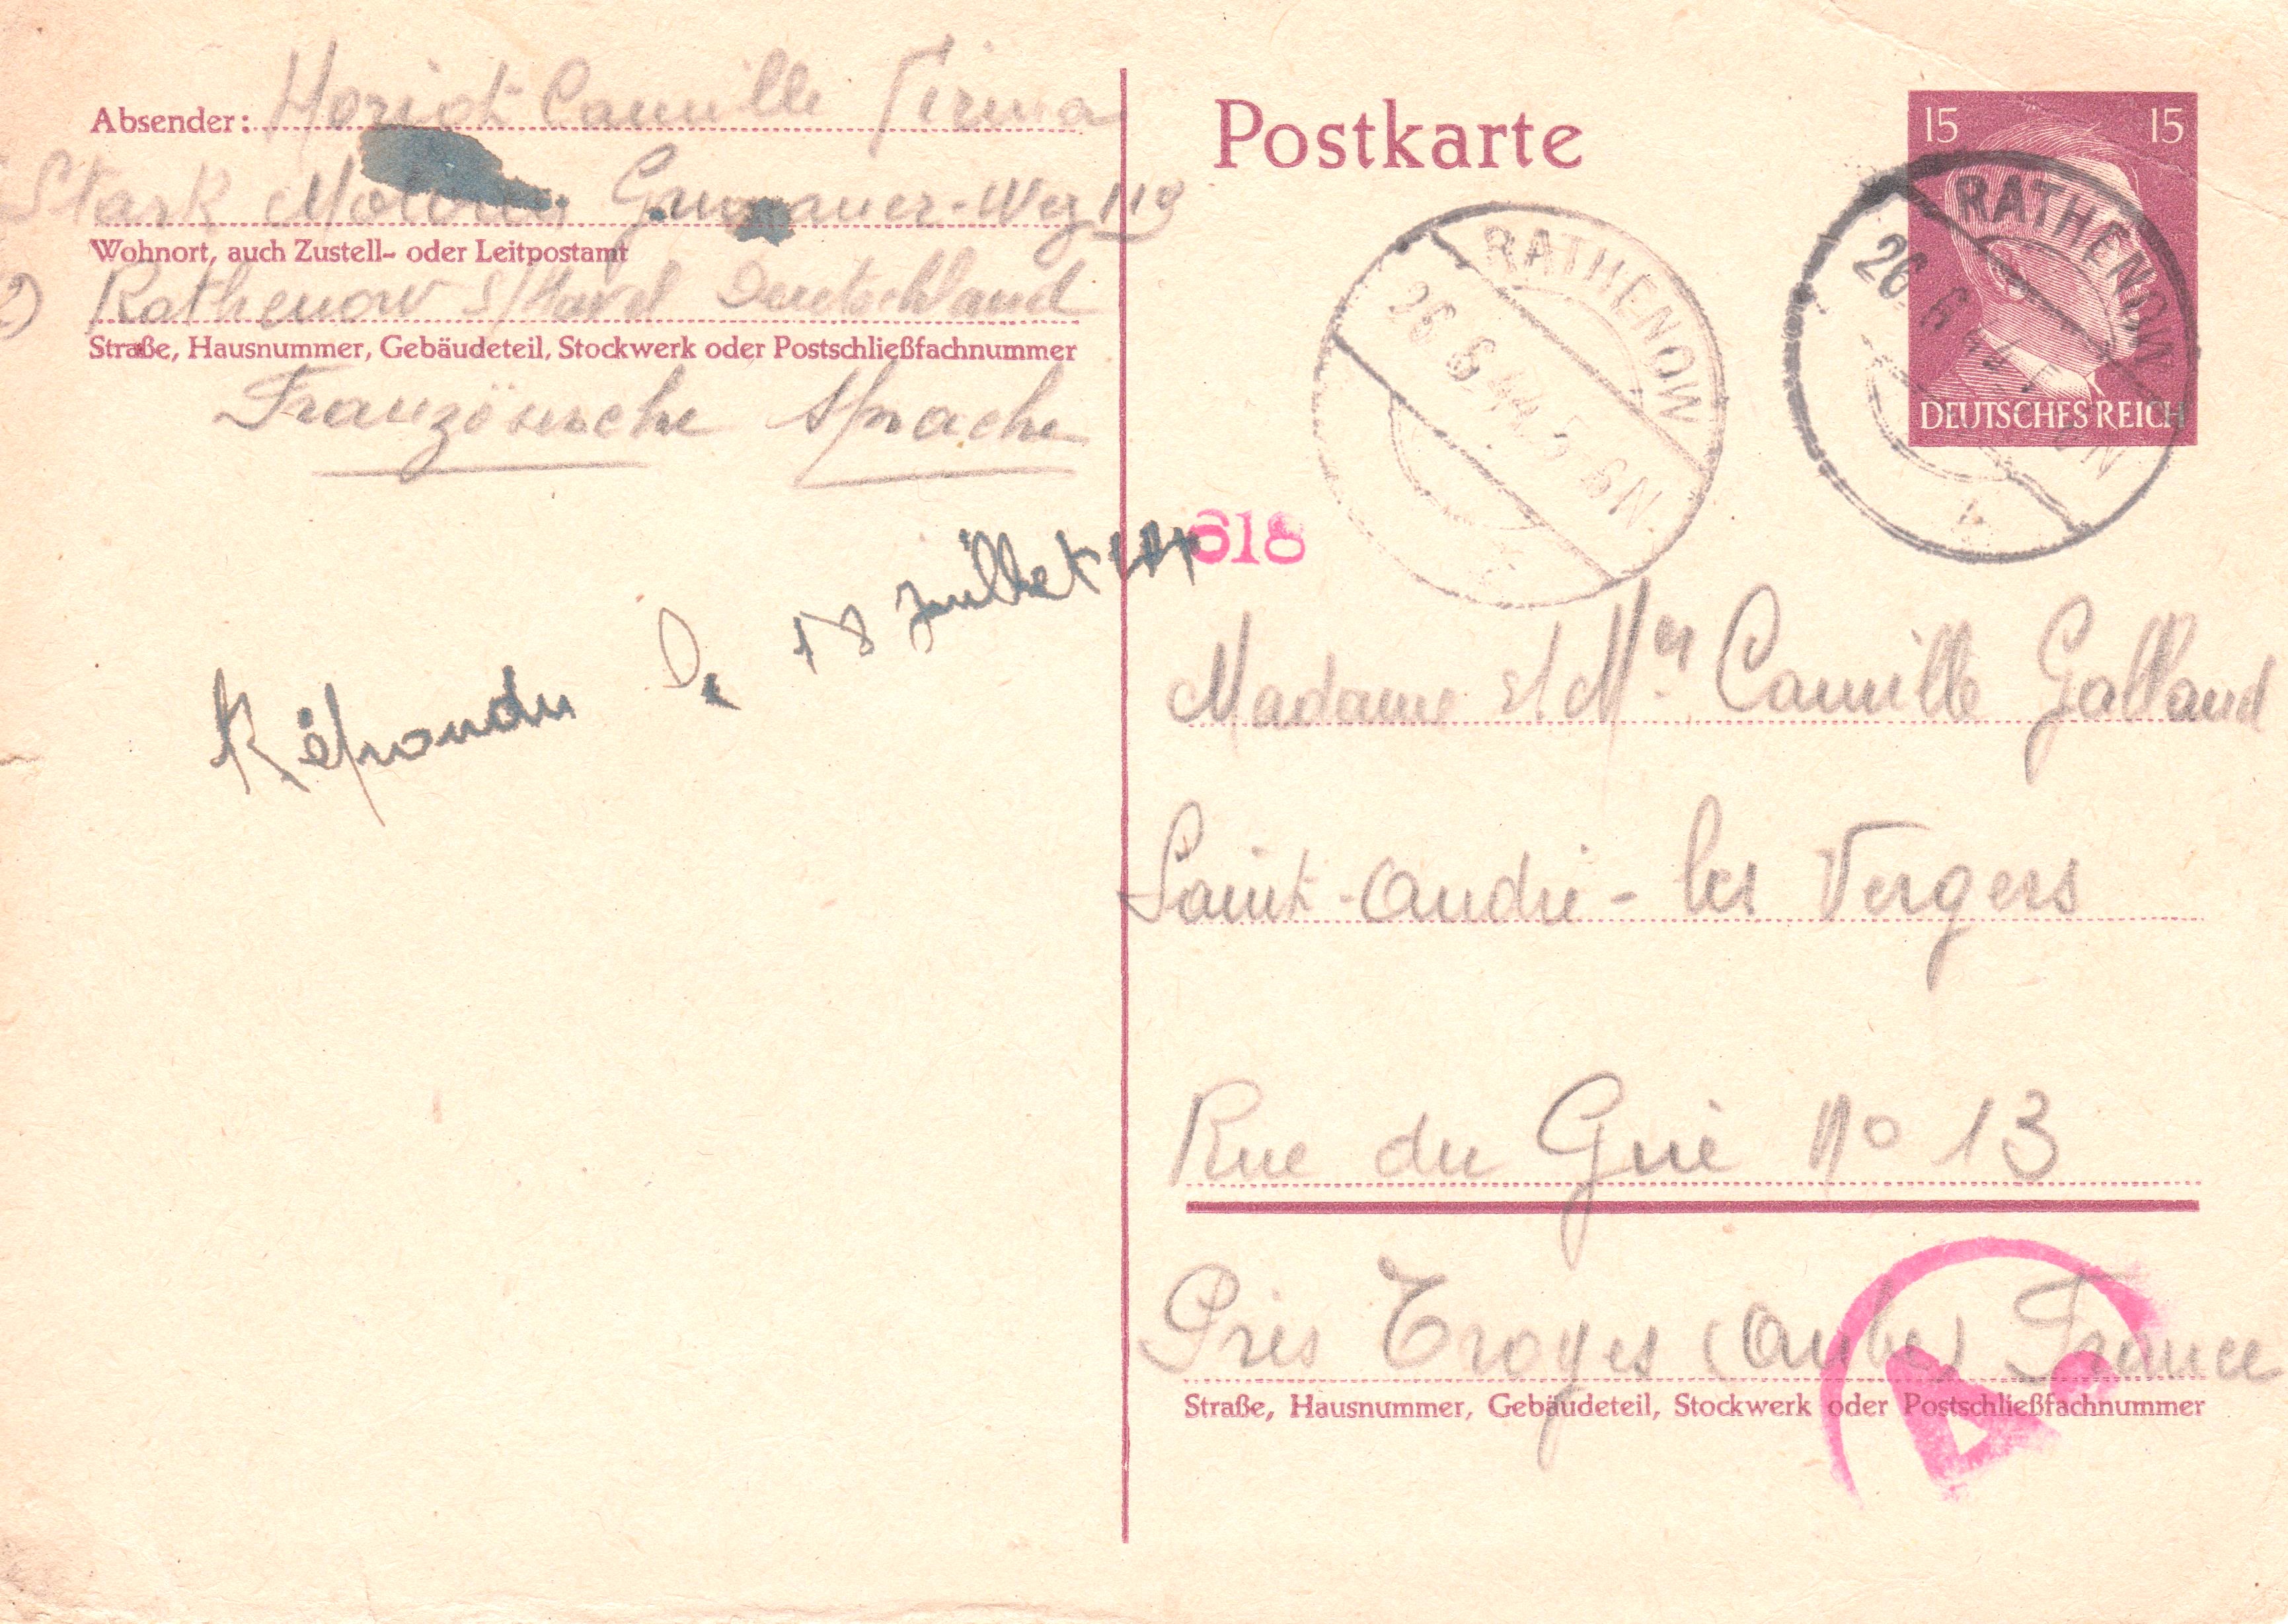 Absender: Horiot Camille Firma
Stark Motoren Grunauer-Weg 11g
Wohnort, auch Zustell- oder Leitpostamt
2) Rathenow s/Havel Deutschland
Straße, Hausnummer, Gebäudeteil, Stockwerk oder Postschließfachnummer
Französische Sprache
Répondu le 18 juillet 44
Postkarte
15 15
DEUTSCHES REICH
RATHENOW
26.6.44.5-6N
RATHENOW
26.6.44.5-6N
618
Madame et Mr Camille Galland
Saint-André-les Vergers
Rue du Gué No 13
Près Troyes (Aube) France
Straße, Hausnummer, Gebäudeteil, Stockwerk oder Postschließfachnummer
A